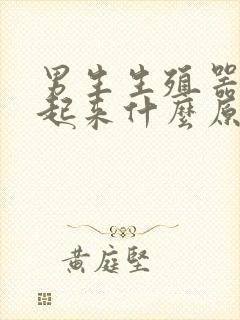 男生生殖器
起来什麼原
黄庭堅